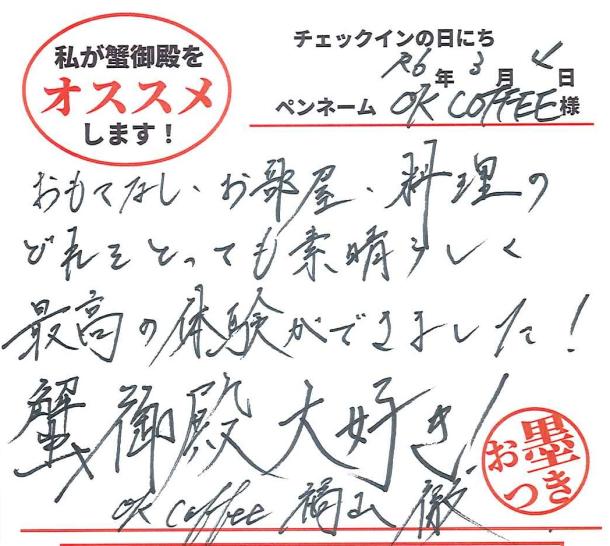 私が蟹御殿を
オススメ
します！
チェックインの日にち
R6年3月 日
ペンネーム OK COFFEE様
おもてなし、お部屋、料理の
どれをとっても素晴らしく
最高の体験ができました！
蟹御殿大好き！
OK coffee 山 徹
お墨つき